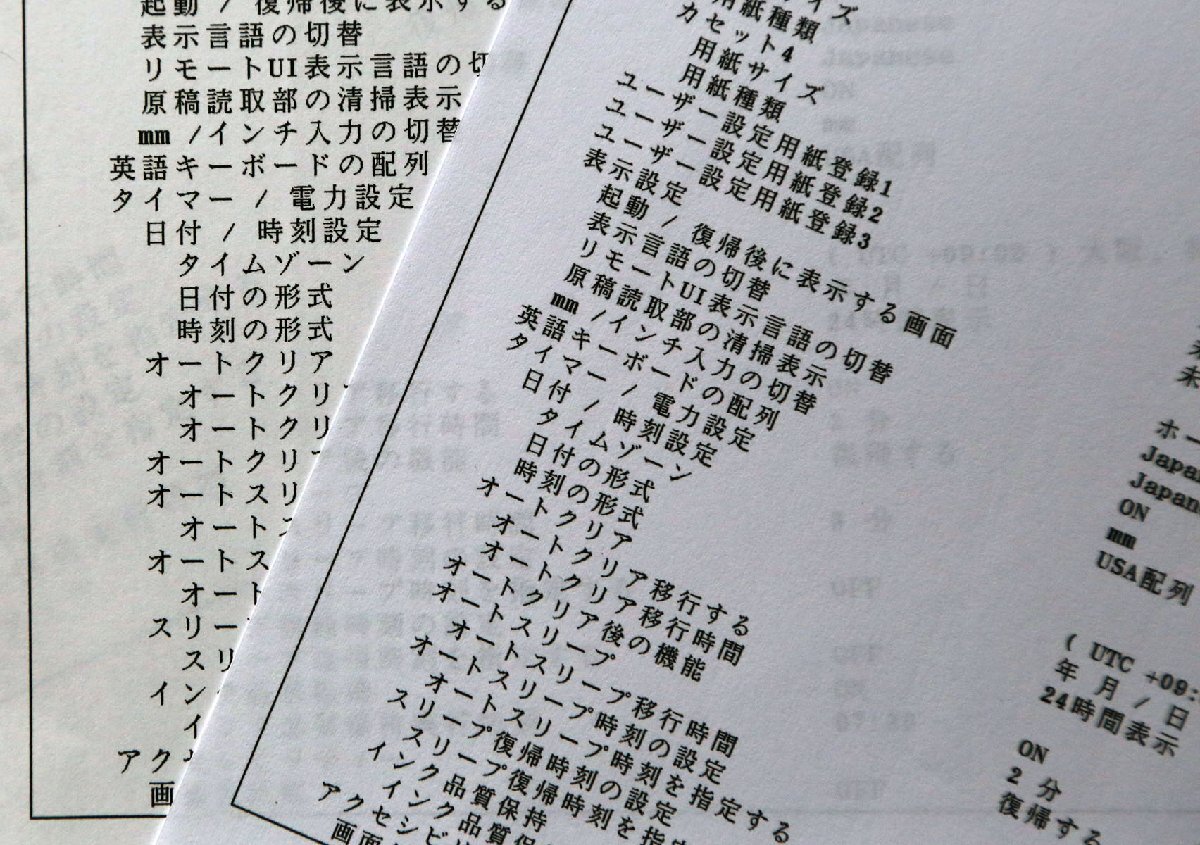 起動 / 復帰後に表示する
表示言語の切替
リモートUI表示言語の切
原稿読取部の清掃表示
mm /インチ入力の切替
英語キーボードの配列
タイマー / 電力設定
日付 / 時刻設定
タイムゾーン
日付の形式
時刻の形式
オートクリア
オートクリ
オートクリ
オートクリア
オートスリ
オート
オートス
オート
スリー
スリ
イン
イ
アク
画
イズ
用紙種類
カセット4
用紙サイズ
用紙種類
ユーザー設定用紙登録1
ユーザー設定用紙登録2
ユーザー設定用紙登録3
表示設定
起動 / 復帰後に表示する画面
表示言語の切替
リモートUI表示言語の切替
原稿読取部の清掃表示
mm /インチ入力の切替
英語キーボードの配列
タイマー / 電力設定
日付 / 時刻設定
タイムゾーン
日付の形式
時刻の形式
オートクリア
オートクリア移行する
オートクリア移行時間
オートクリア後の機能
オートスリープ
オートスリープ移行時間
オートスリープ時刻の設定
オートスリープ時刻を指定する
スリープ復帰時刻の設定
スリープ復帰時刻を指定
インク品質保持
インク品質保
アクセシビリ
画面
ホー
Japan
Japan
ON
mm
USA配列
( UTC +09:
年 月 / 日
24時間表示
ON
2 分
復帰する